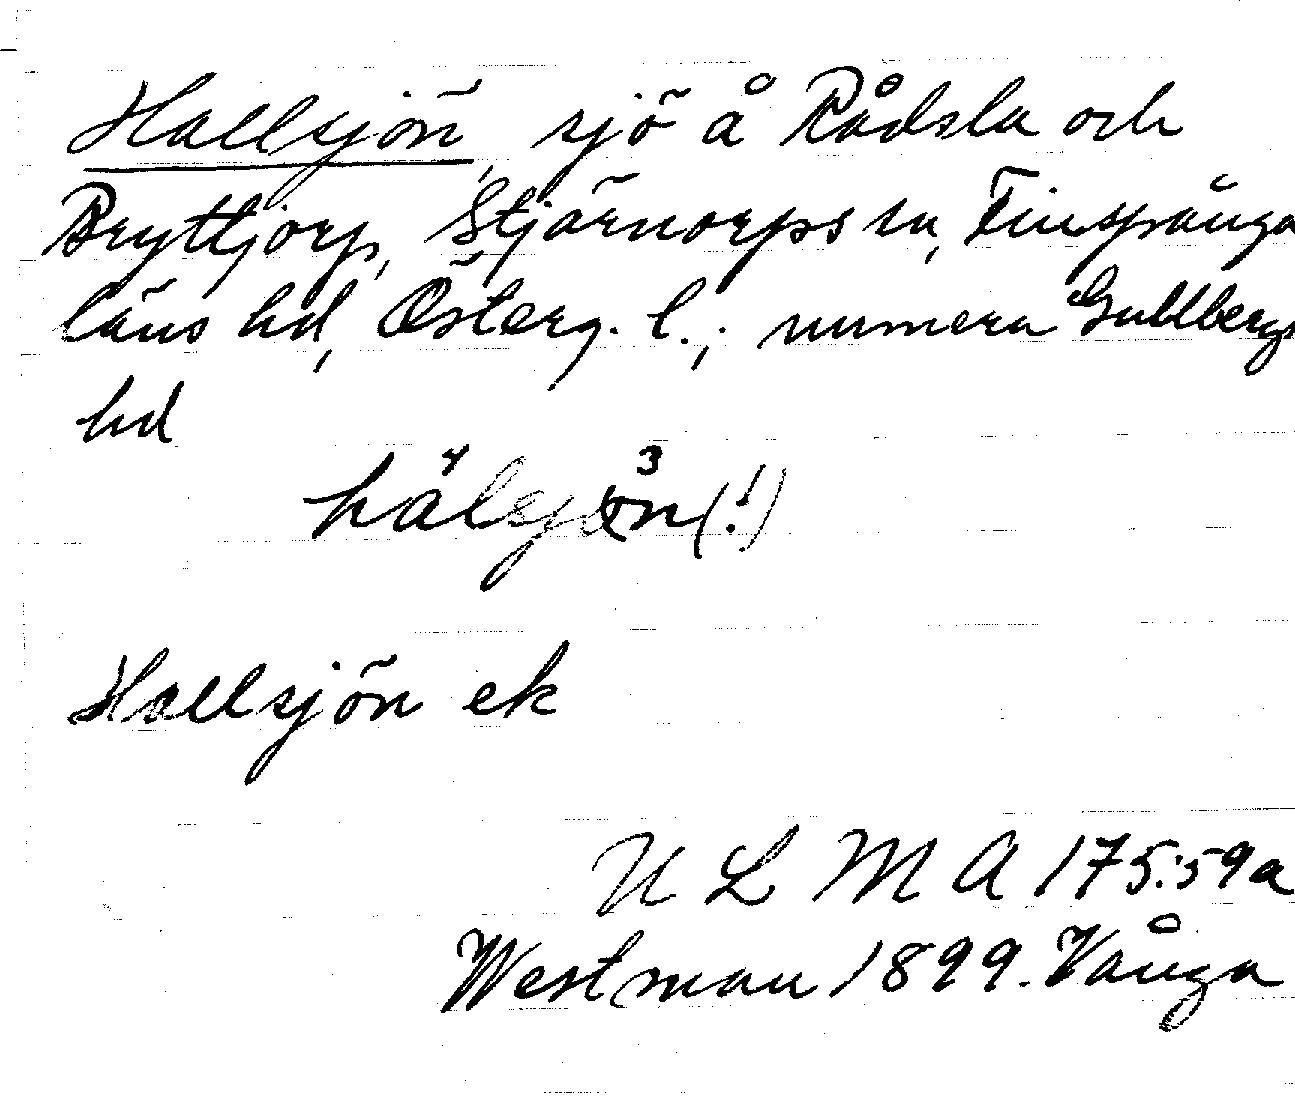 Hallsjön, sjö å Rådsla och
Bryttjorp, Stjärnorps sn, Finspånga
läns hd, Österg. l.; numera Gullbergs
hd
4 3
hälsjön (!)
Hallsjön ek
U L M A 175:59a
Westman 1899. Vånga